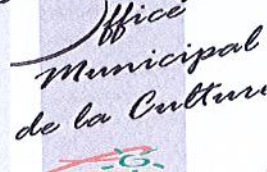 Office
Municipal
de la Culture